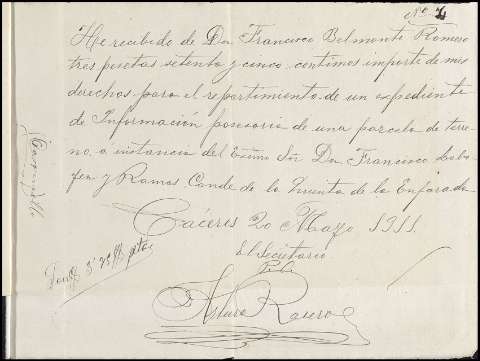 No. 4
He recibido de Don Francisco Belmonte Romero
tres pesetas setenta y cinco centimos importe de mis
derechos para el repartimiento de un expediente
de Información posesoria de una parcela de terre-
no, a instancia del Exmo Sñr Don Francisco
y Ramos Conde de la Quinta de la Enjarada
Cáceres 20 Mayo 1911.
El Secretario
Arturo
3'75 ptas